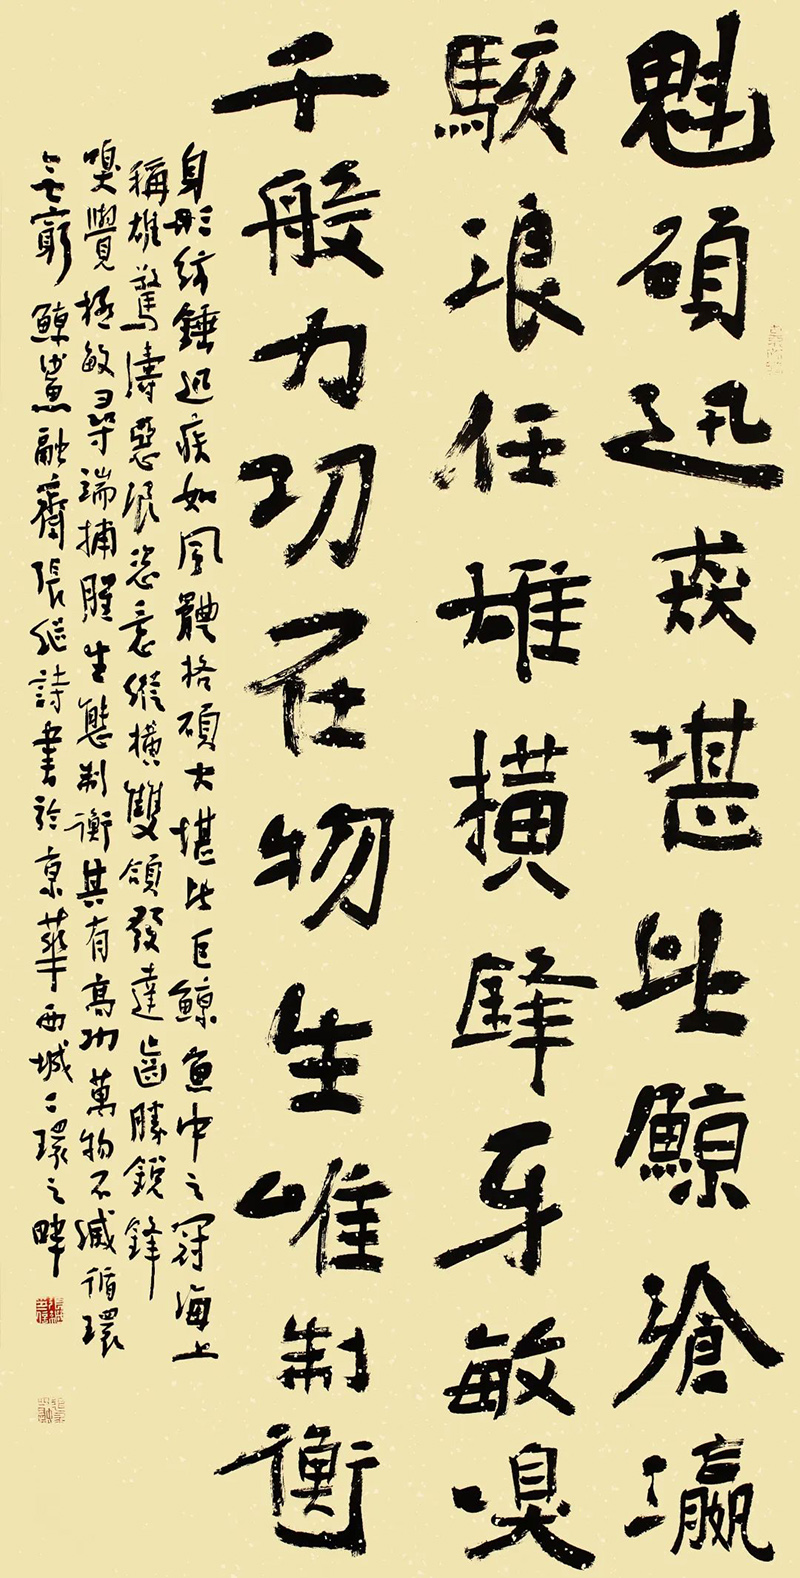 魁碩迅堪比鯨滄瀛
駭浪任雄橫鋒牙敏嗅
千般力功在物生唯制衡
身形紡錘迅疾如風體格碩大堪比巨鯨魚中之冠海上
稱雄驚濤惡浪恣意縱橫雙頜發達齒勝銳鋒
嗅覺極敏尋端捕腥生態制衡其有高功萬物不滅循環
无窮鯨鯊融齋張繼詩書於京華西城二環之畔